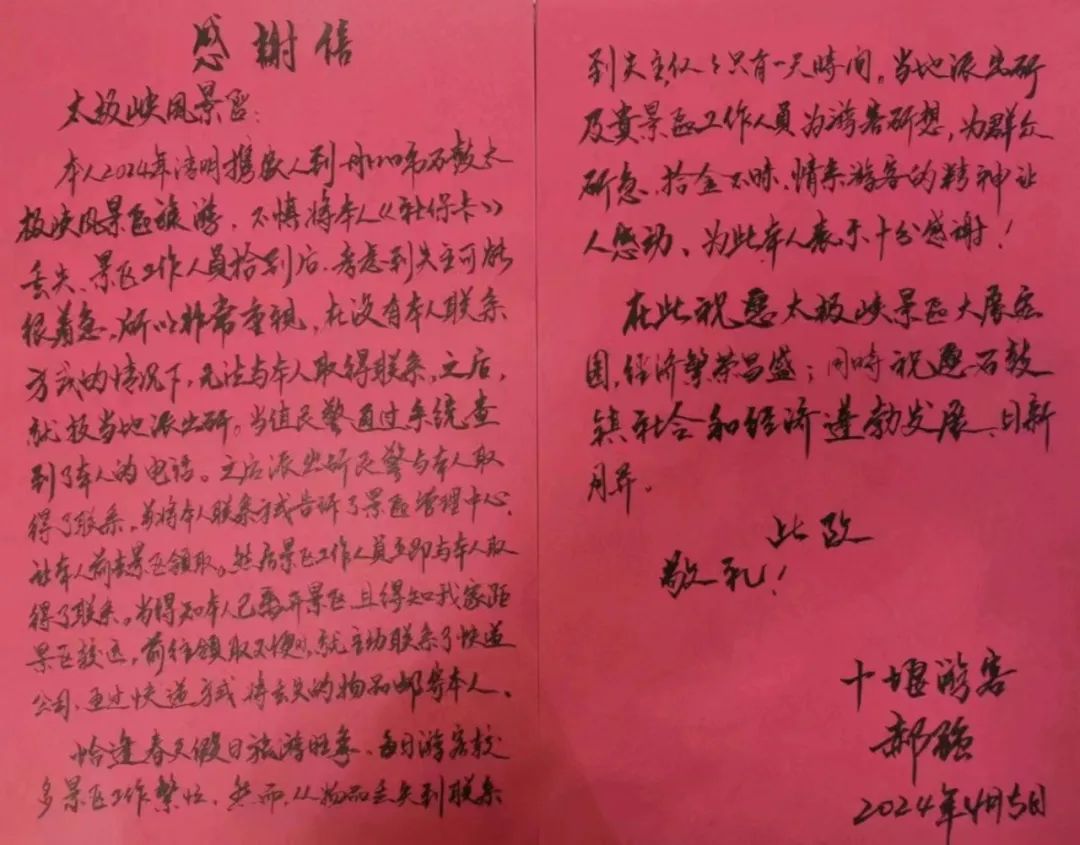 感謝信
太极峡风景区:
本人2024年清明携家人到丹江口市石鼓太
极峡风景区旅游，不慎将本人《社保卡》
丢失、景区工作人員拾到后，考虑到失主可能
很着急，所以非常重視，在没有本人联系
方式的情况下，无法与本人取得联系，之后，
就报当地派出所。当值民警通过系统查
到了本人的电话。之后派出所民警与本人取
得了联系，并将本人联系方式告訴了景區管理中心，
让本人前去景区领取。然后景区工作人员立即与本人取
得了联系。当得知本人已离开景区，且得知我家距
景区较远，前往领取不便，就主动联系了快递
公司，通过快递方式将丢失的物品邮寄本人、
恰逢春天假日旅游旺季、每日游客较
多景区工作繁忙，然而，从物品丢失到联系
到失主仅仅只有一天時间。当地派出所
及贵景區工作人員为游客所想，为群众
所急、拾金不昧、情系游客的精神让
人感动、为此本人表示十分感谢！
在此祝愿太极峡景區大展宏
图，经济繁荣昌盛；同時祝愿石鼓
镇社会和经济蓬勃发展、日新
月异。
此致
敬礼！
十堰游客
郝强
2024年4月5日